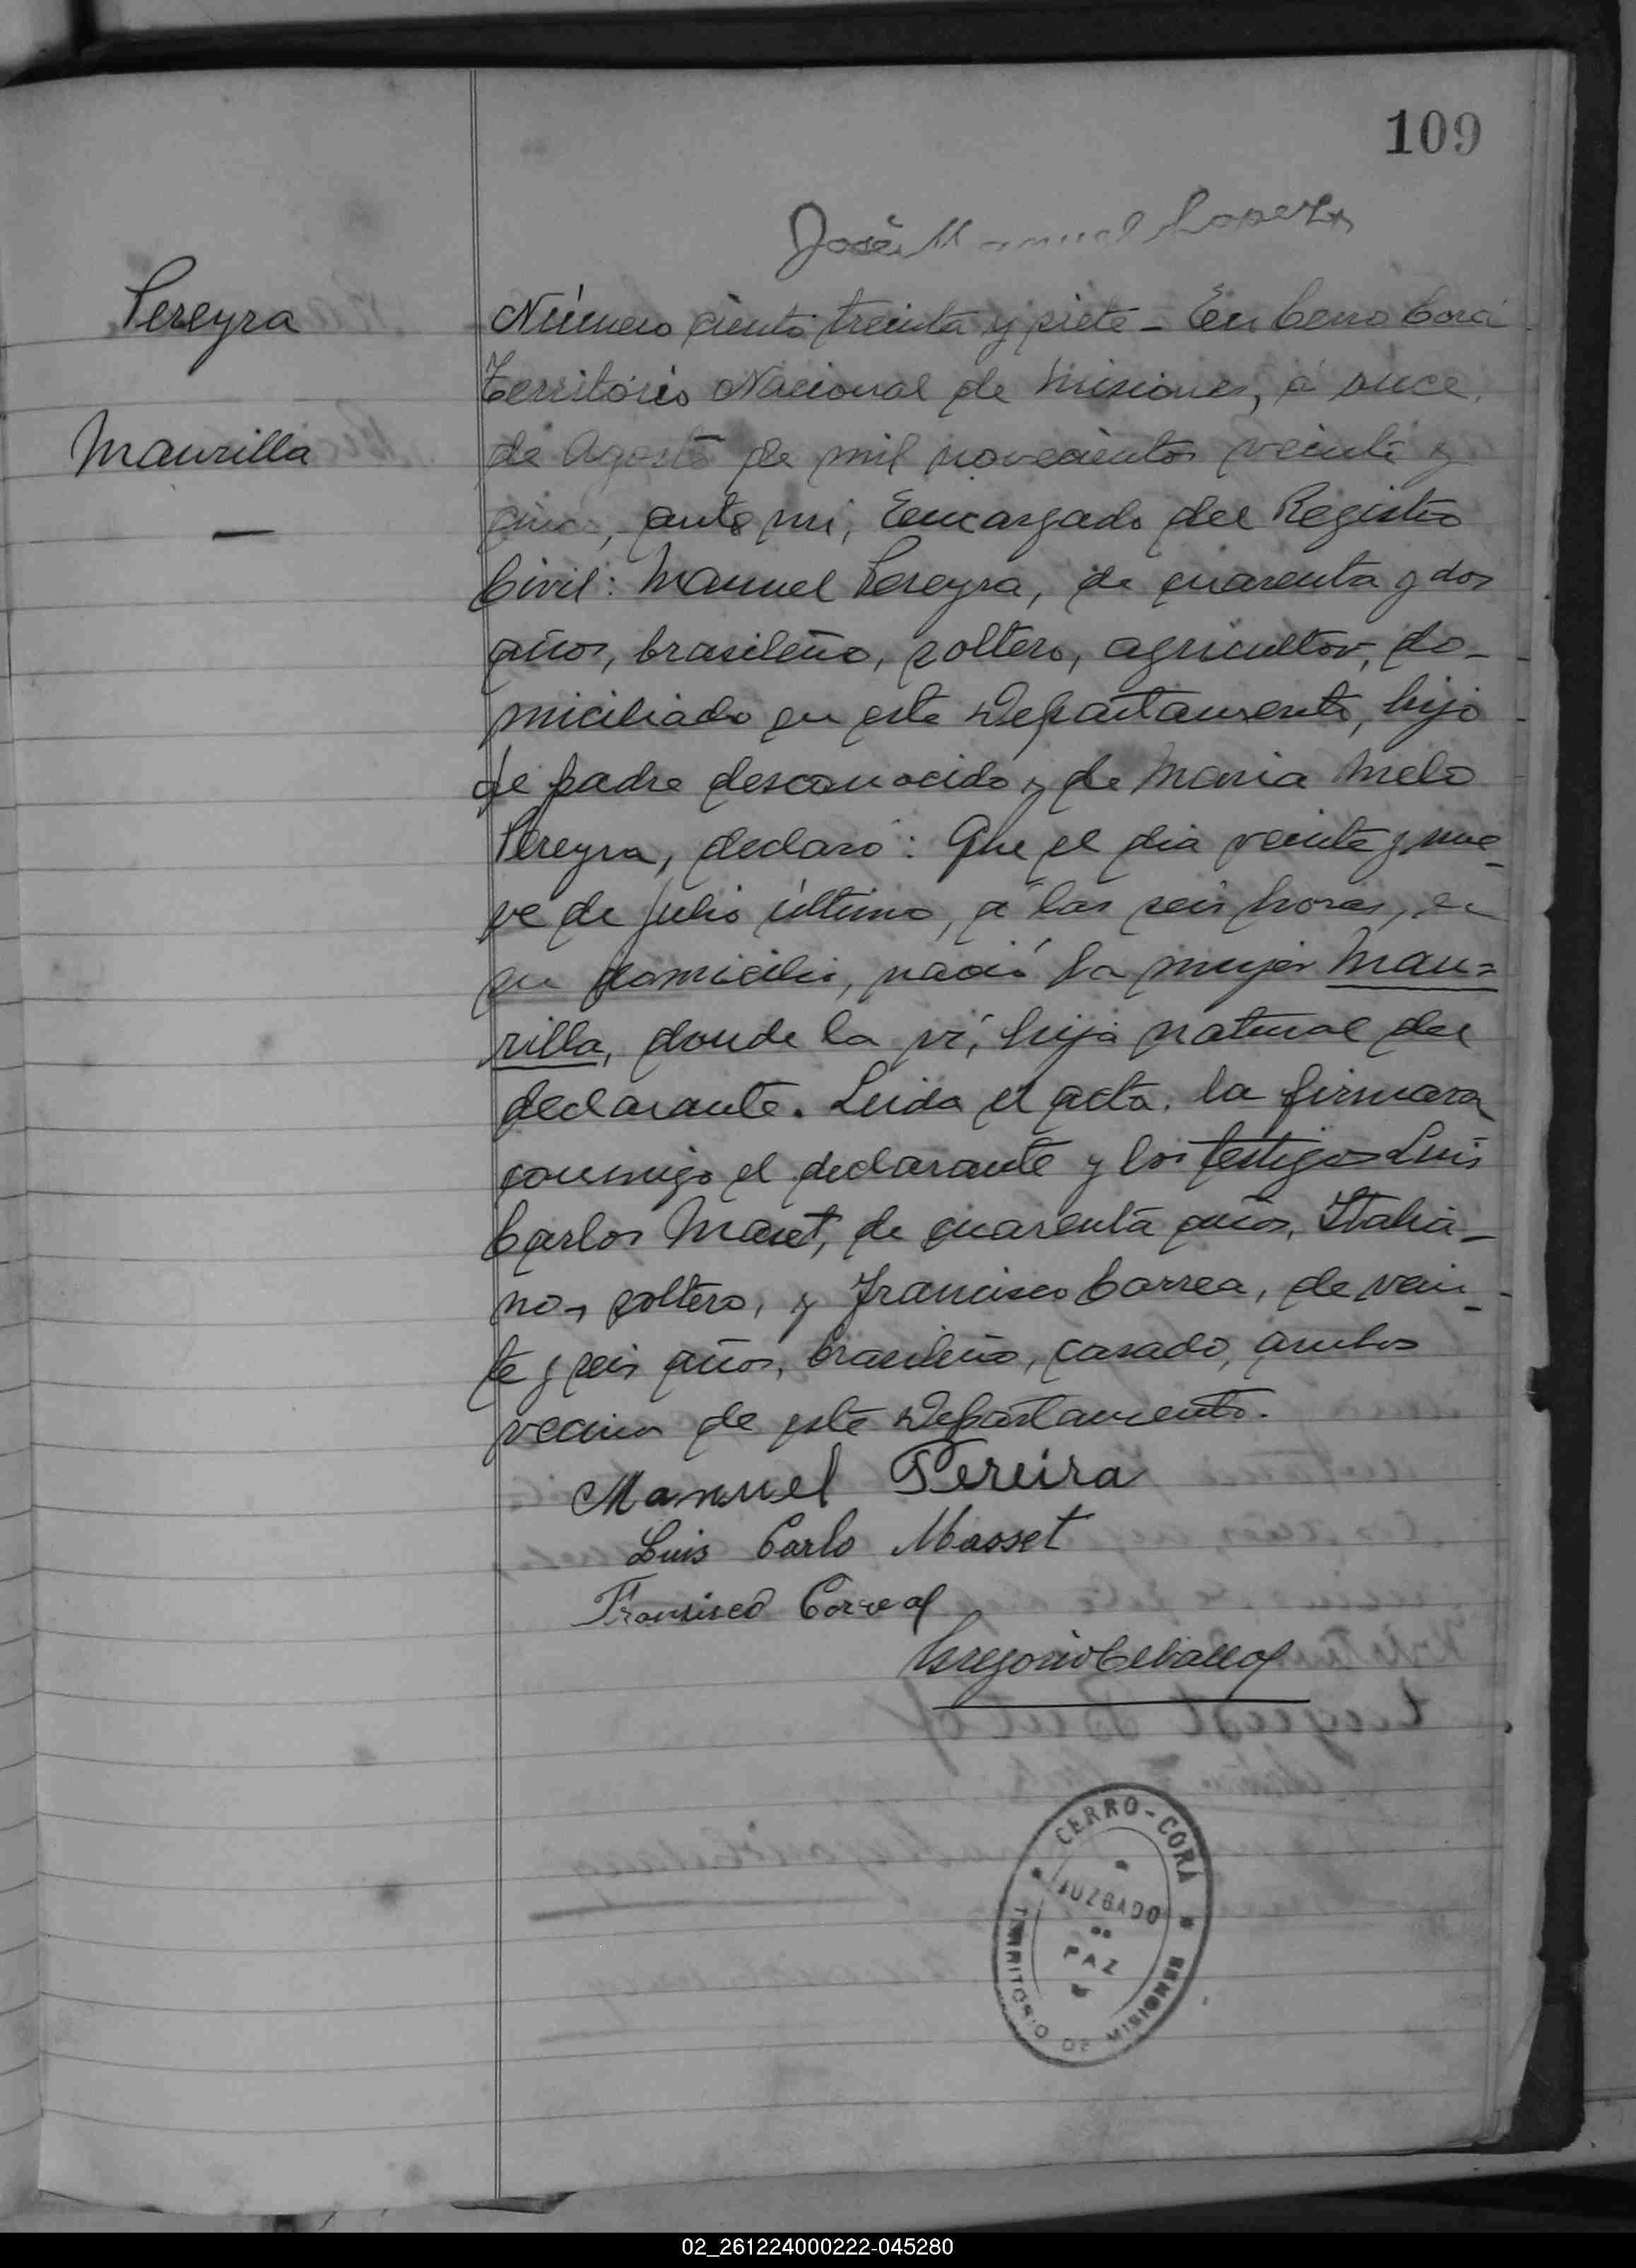 109
José Manuel Lopez
Pereyra
Maurilla
Número ciento treinta y siete - En Cerro Corá
Territorio Nacional de Misiones, á once
de Agosto de mil novecientos veinte y
cinco, ante mi, Encargado del Registro
Civil: Manuel Pereyra, de cuarenta y dos
años, brasileño, soltero, agricultor, do-
miciliado en este Departamento, hijo
de padre desconocido y de Maria Melo
Pereyra, declaró: Que el dia veinte y nue-
ve de Julio último, á las seis horas, en
su domicilio, nació la mujer Mau=
rilla, donde la ví, hija natural del
declarante. Leida el acta, la firmara
conmigo el declarante y los testigos Luis
Carlos Maset, de cuarenta años, Italia-
no, soltero, y Francisco Correa, de vein-
te y seis años, brasileño, casado, ambos
vecinos de este Departamento.
Manuel Pereira
Luis Carlo Masset
Fransisco Correa
Gregorio Ceballos
CERRO-CORÁ
JUZGADO
PAZ
TERRITORIO DE MISIONES
02_261224000222-045280